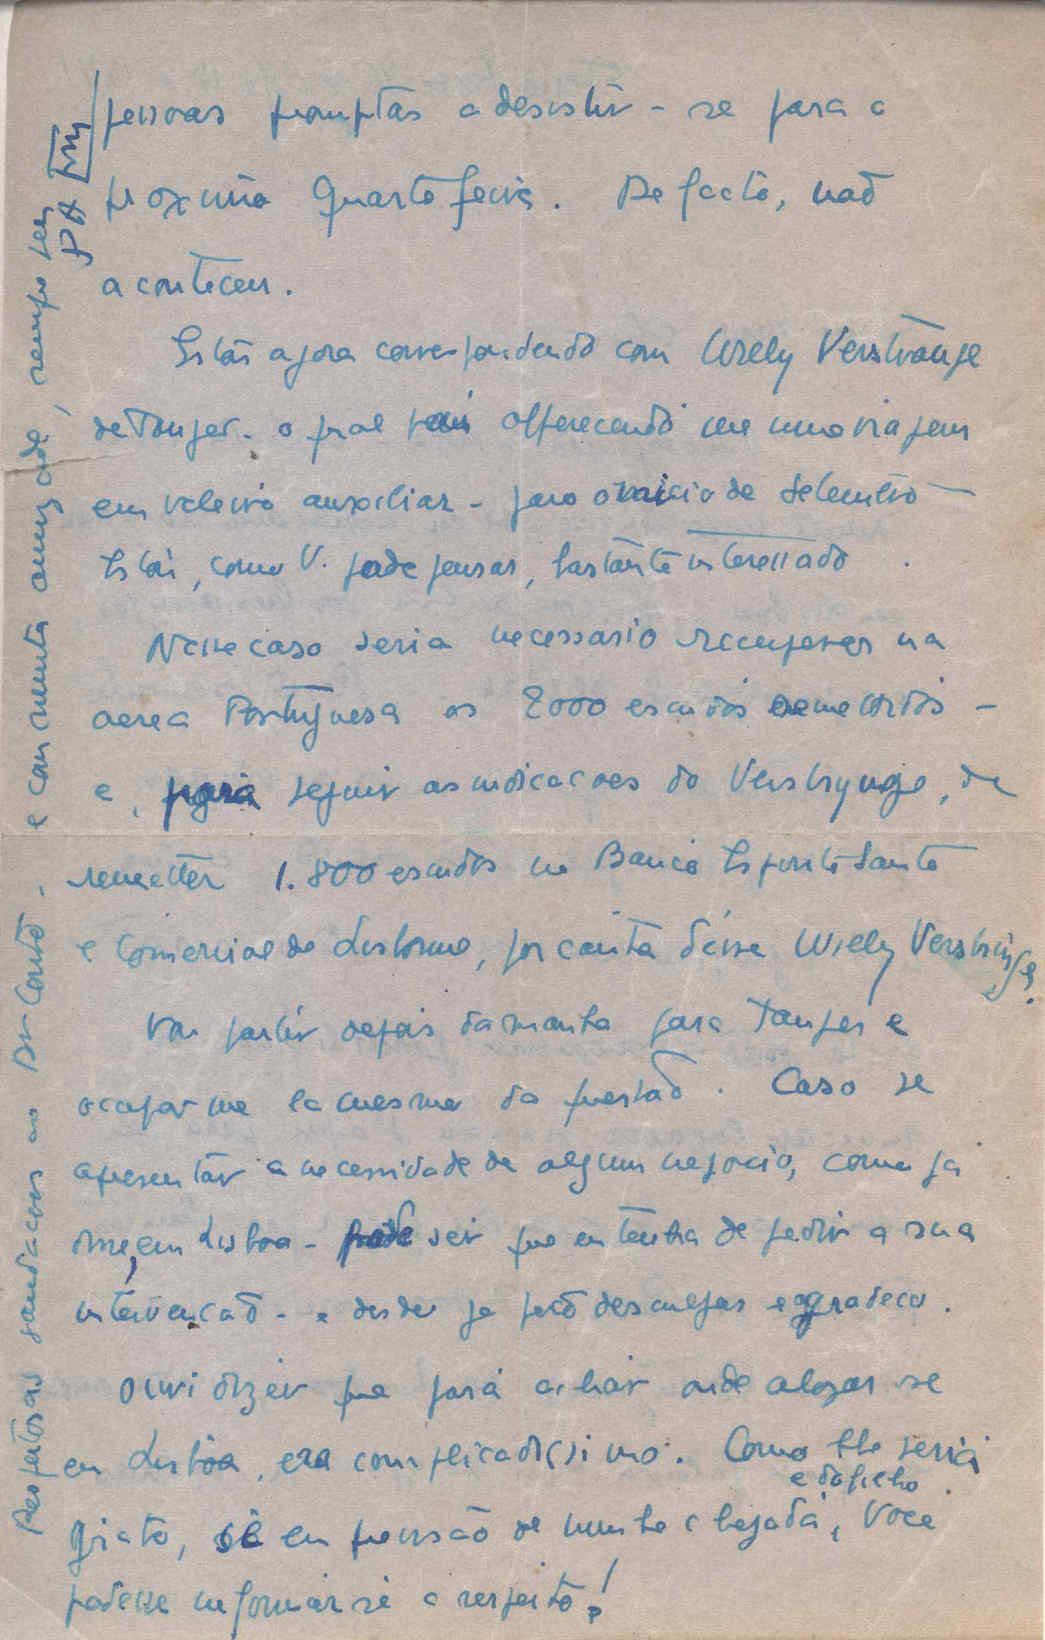 pessoas promptas a desistir-se para a
proxima Quarta feira. De facto, naõ
aconteceu.
Estou agora correspondendo com Willy Verstraege
de Tanger. o qual vem offerecendo me uma viajem
em veleiro auxiliar - para o inicio de Setembro -
Estou, como V. pode pensar, bastante interessado.
Nesse caso seria necessario recuperar na
aerea Portuguesa os 2000 escudos remettidos -
e, para seguir as indicacoes do Verstrynge, de
remetter 1.800 escudos no Banco Espirito Santo
e Comercial de Lisbonne, por conta desse Willy Verstringe.
Vou partir depois damanha para Tanger e
ocupar me la mesmo da questaõ. Caso se
apresentar a necessidade de algum negocio, como ja
disse, em Lisboa - pode ser que eu tenha de pedir a sua
intervencaõ - e desde ja peço desculpas e agradeco.
Ouvi dizer que para achar onde alojar-se
em Lisbôa, era complicadissimo. Como lhe seria
grato, se em previsaõ de minha chegada, e do filho, Voce
podesse informar-se a respeito!
Respeitosas saudacoes ao Dr Couto - e com muita amizade, sempre seu